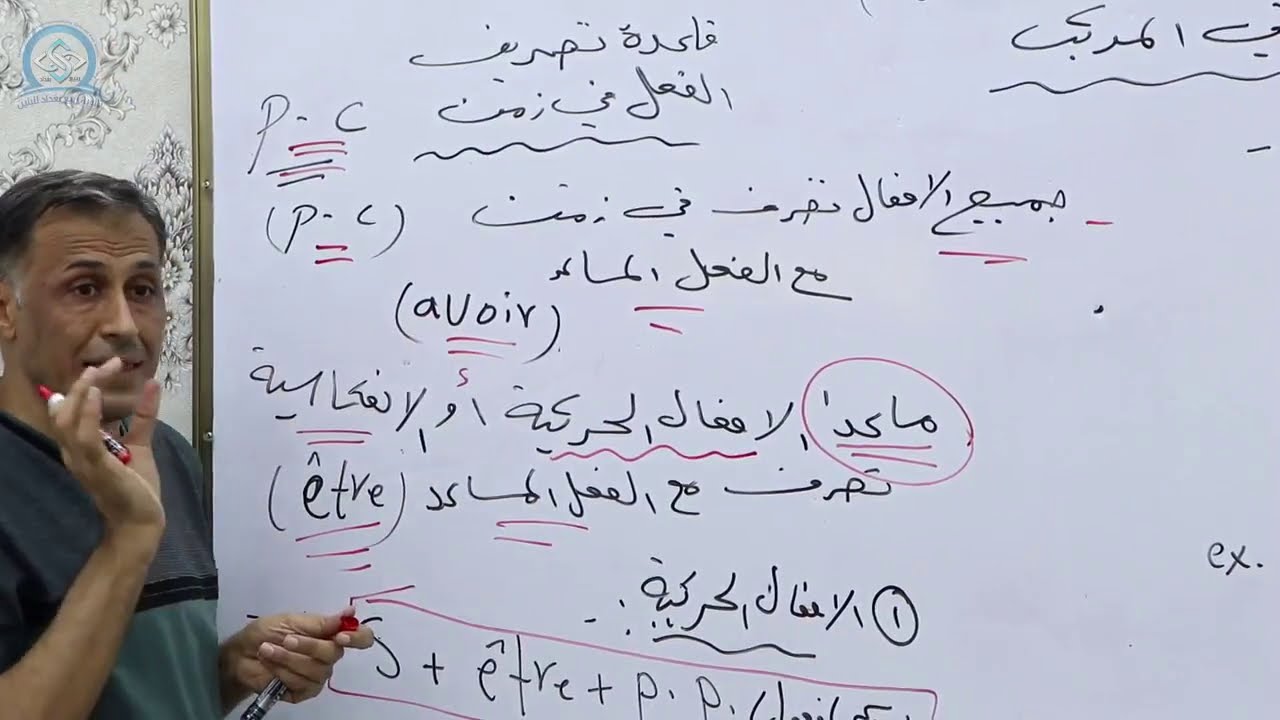 في المركب
قاعدة تصريف
الفعل في زمن
P-C
جميع الافعال تصرف في زمن (P-C)
مع الفعل المساعد
(avoir)
ماعدا الافعال الحركية أو الانعكاسية
تصرف مع الفعل المساعد (être)
① الافعال الحركية :-
S + être + p.p.
ex.